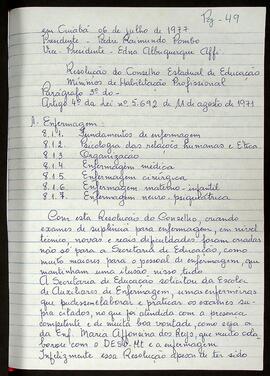 Pg - 49
em Cuiabá 06 de julho de 1977
Presidente - Pedro Raimundo Pombo
Vice-Presidente - Edna Albuquerque Affi
Resolução do Conselho Estadual de Educação
Mínimos de Habilitação Profissional
Parágrafo 3º do -
Artigo 4º da Lei nº 5.692, 11 de agosto de 1971
1. Enfermagem:
8.1.1. Fundamentos de enfermagem
8.1.2. Psicologia das relações humanas e Ética
8.1.3 Organização
8.1.4. Enfermagem médica
8.1.5. Enfermagem cirúrgica
8.1.6. Enfermagem materno-infantil
8.1.7. Enfermagem neuro-psiquiátrica
Com esta Resolução do Conselho, quando
exames de suplência para enfermagem, em nível
técnico, novas e reais dificuldades foram criadas
não só para a Secretaria de Educação, como
muito maiores para o pessoal de enfermagem, que
mantinham uma ilusão, nisso tudo
A Secretaria de Educação solicitou da Escola
de Auxiliares de Enfermagem, umas enfermeiras
que pudessem elaborar e praticar os exames su-
pra citados, no que foi atendida com a presença
competente e de muita boa vontade, como seja a
da Enf. Maria Affonsina dos Reys, que muito cola-
borou com o DESU-Mt e a enfermagem
Infelizmente essa Resolução apesar de ter sido